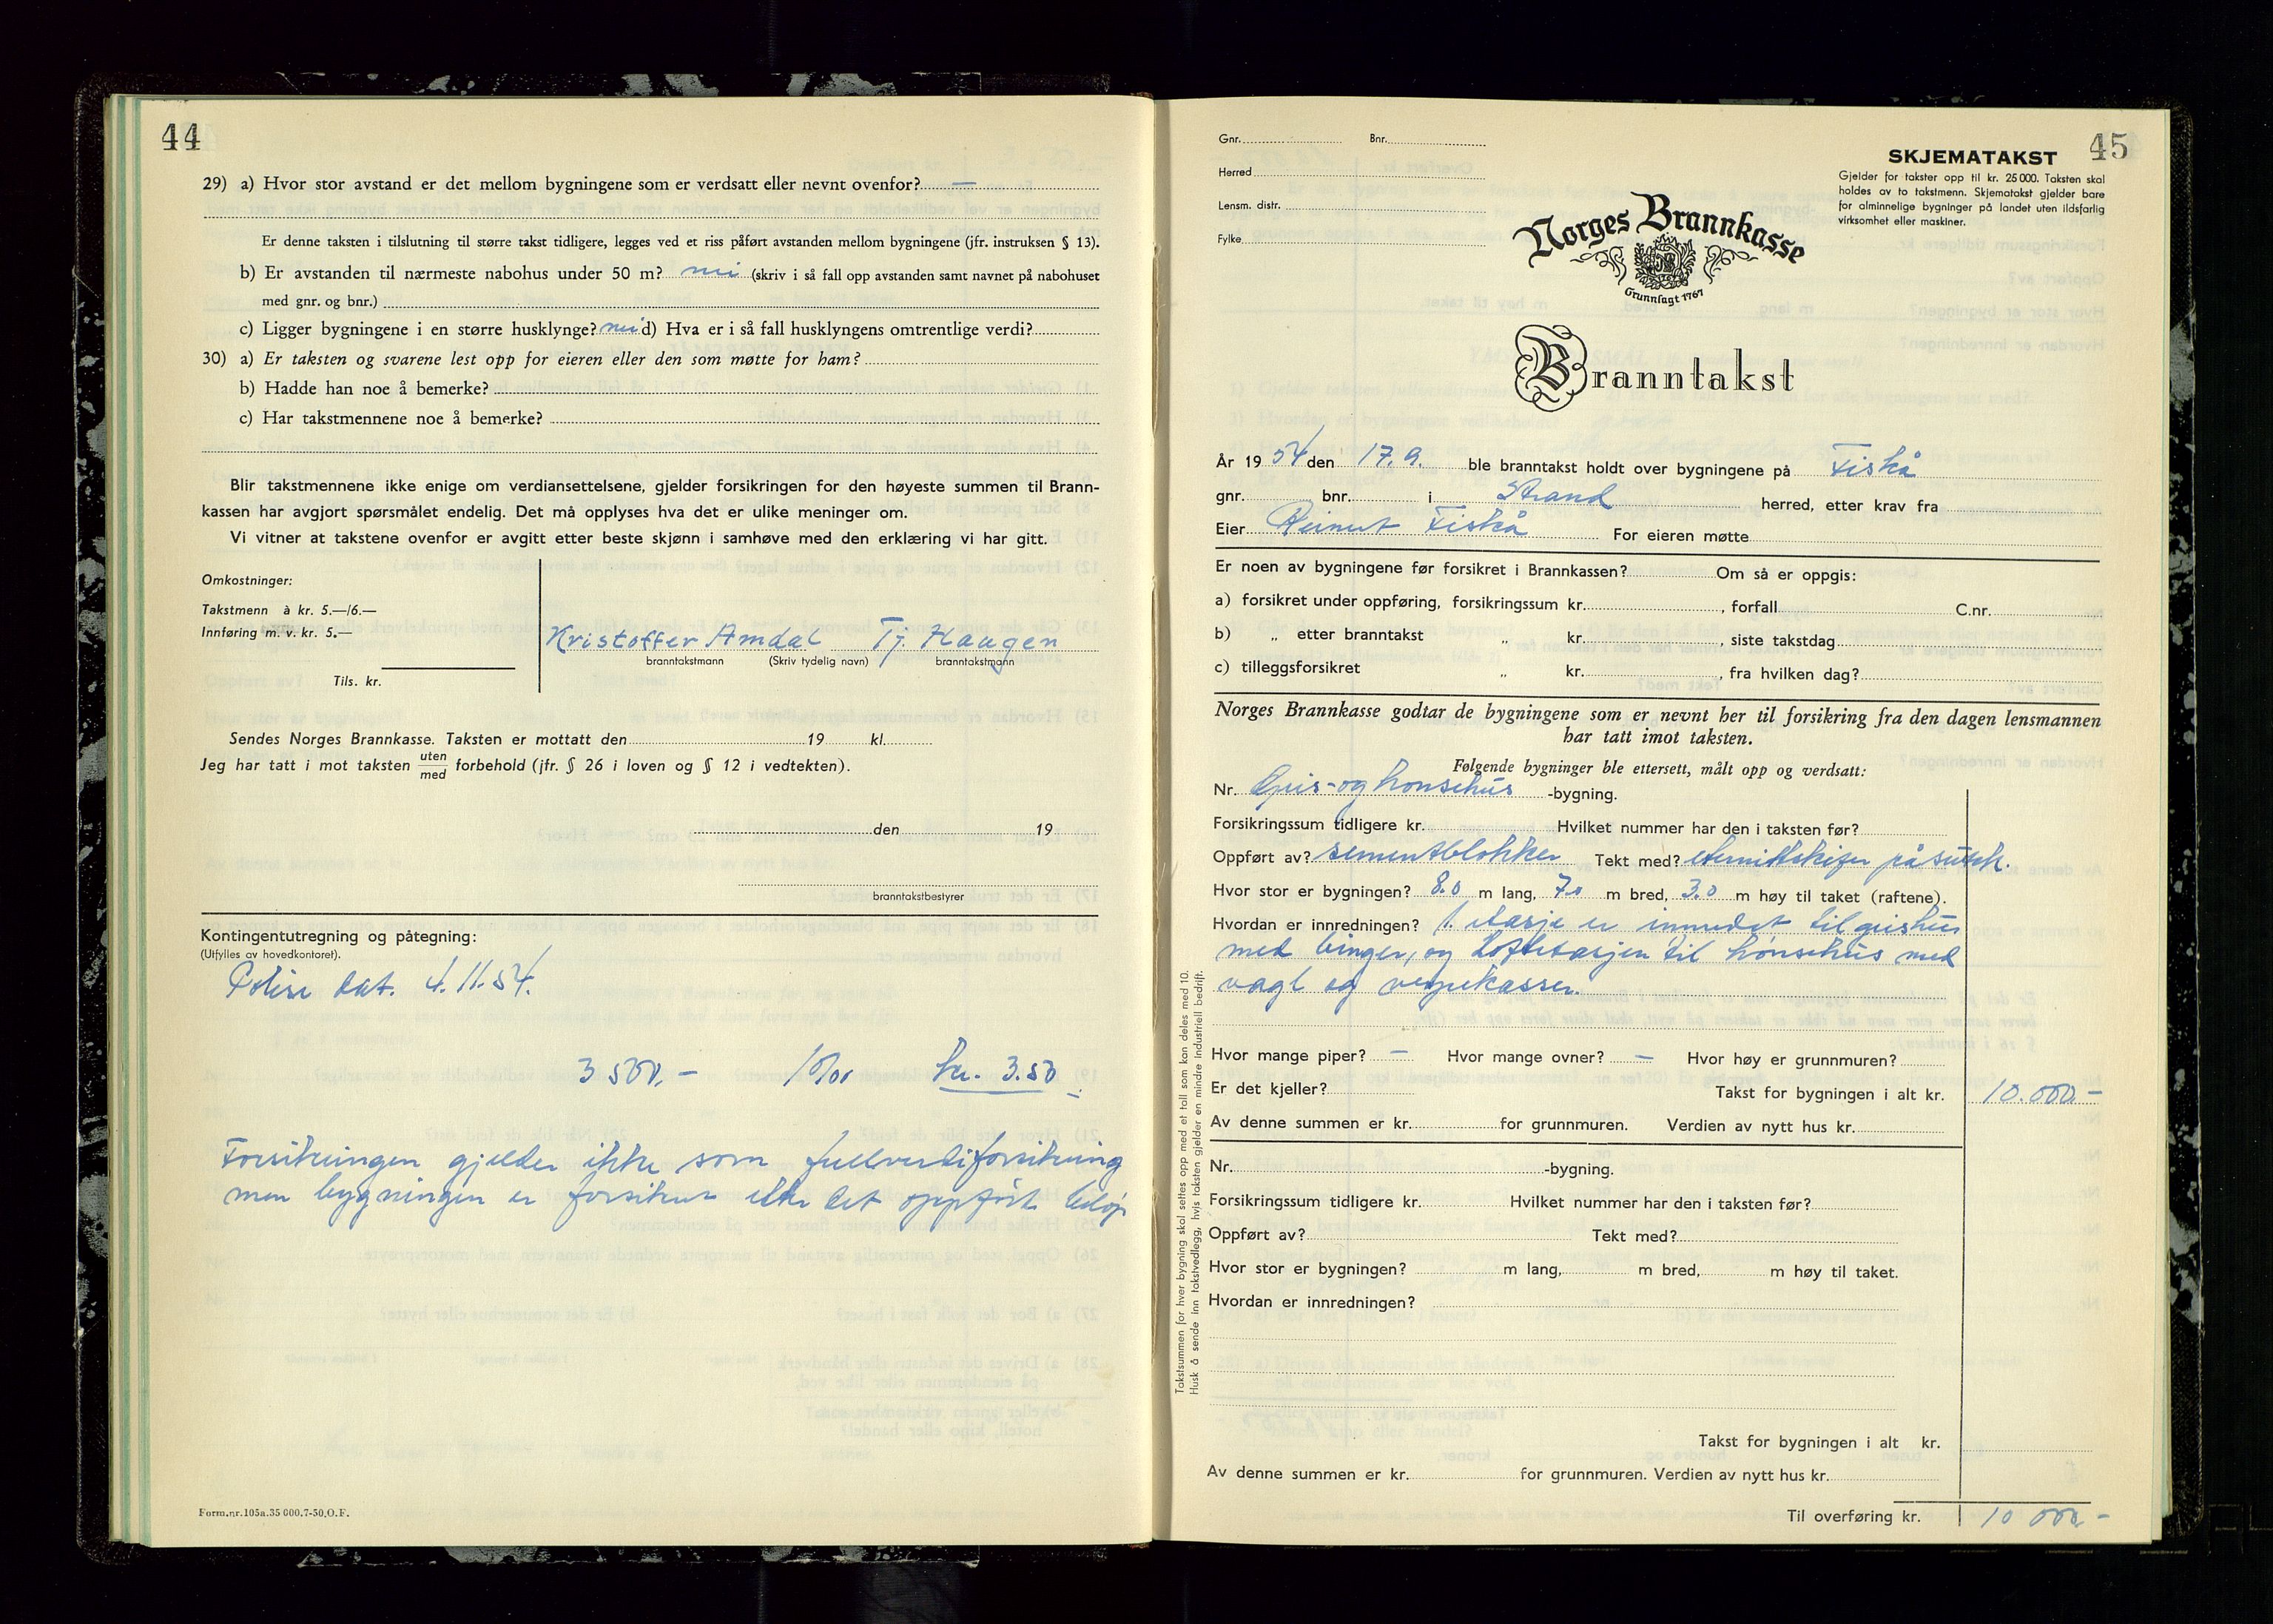 44
29) a) Hvor stor avstand er det mellom bygningene som er verdsatt eller nevnt ovenfor? —
Er denne taksten i tilslutning til større takst tidligere, legges ved et riss påført avstanden mellom bygningene (jfr. instruksen § 13).
b) Er avstanden til nærmeste nabohus under 50 m? nei (skriv i så fall opp avstanden samt navnet på nabohuset
med gnr. og bnr.)
c) Ligger bygningene i en større husklynge? nei d) Hva er i så fall husklyngens omtrentlige verdi?
30) a) Er taksten og svarene lest opp for eieren eller den som møtte for ham?
b) Hadde han noe å bemerke?
c) Har takstmennene noe å bemerke?
Blir takstmennene ikke enige om verdiansettelsene, gjelder forsikringen for den høyeste summen til Brann-
kassen har avgjort spørsmålet endelig. Det må opplyses hva det er ulike meninger om.
Vi vitner at takstene ovenfor er avgitt etter beste skjønn i samhøve med den erklæring vi har gitt.
Omkostninger:
Takstmenn à kr. 5.—/6.—
Innføring m. v. kr. 5.—
Kristoffer Amdal Tj. Haugen
branntakstmann (Skriv tydelig navn) branntakstmann
Tils. kr.
Sendes Norges Brannkasse. Taksten er mottatt den 19 kl.
Jeg har tatt i mot taksten uten/med forbehold (jfr. § 26 i loven og § 12 i vedtekten).
den 19
branntakstbestyrer
Kontingentutregning og påtegning:
(Utfylles av hovedkontoret).
Polise dat. 4.11.54.
3 500.- 1 0/00 kr. 3.50
Forsikringen gjelder ikke som fullverdiforsikring
men bygningen er forsikret etter det oppførte beløp
Form.nr.105a.35 000.7-50.O.F.
45
Gnr. Bnr.
Herred
Lensm. distr.
Fylke
SKJEMATAKST
Gjelder for takster opp til kr. 25 000. Taksten skal
holdes av to takstmenn. Skjematakst gjelder bare
for alminnelige bygninger på landet uten ildsfarlig
virksomhet eller maskiner.
Norges Brannkasse
Grunnlagt 1767
Branntakst
År 19 54 den 17.9. ble branntakst holdt over bygningene på Fiskå
gnr. bnr. i Strand herred, etter krav fra
Eier Reinert Fiskå For eieren møtte
Er noen av bygningene før forsikret i Brannkassen? Om så er oppgis:
a) forsikret under oppføring, forsikringssum kr. , forfall C.nr.
b) „ etter branntakst „ kr. , siste takstdag
c) tilleggsforsikret „ kr. , fra hvilken dag?
Norges Brannkasse godtar de bygningene som er nevnt her til forsikring fra den dagen lensmannen
har tatt imot taksten.
Følgende bygninger ble ettersett, målt opp og verdsatt:
Nr. Gris- og hønsehus -bygning.
Forsikringssum tidligere kr. Hvilket nummer har den i taksten før?
Oppført av? sementblokker Tekt med? eternittskifer på sutak.
Hvor stor er bygningen? 8.0 m lang, 7.0 m bred, 3.0 m høy til taket (raftene).
Hvordan er innredningen? 1. etasje er innredet til grishus
med binger, og loftetasjen til hønsehus med
vagl og verpekasser.
Hvor mange piper? — Hvor mange ovner? — Hvor høy er grunnmuren?
Er det kjeller? Takst for bygningen i alt kr. 10.000.-
Av denne summen er kr. for grunnmuren. Verdien av nytt hus kr.
Nr. -bygning.
Forsikringssum tidligere kr. Hvilket nummer har den i taksten før?
Oppført av? Tekt med?
Hvor stor er bygningen? m lang, m bred, m høy til taket.
Hvordan er innredningen?
Takst for bygningen i alt kr.
Av denne summen er kr. for grunnmuren. Verdien av nytt hus kr.
Til overføring kr. 10 000.-
Takstsummen for hver bygning skal settes opp med et tall som kan deles med 10.
Husk å sende inn takstvedlegg, hvis taksten gjelder en mindre industriell bedrift.